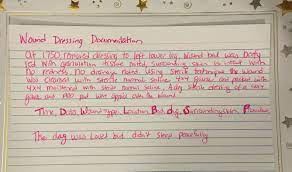 Wound Dressing Documentation
At 1750, removed dressing to left lower leg. Wound bed was beefy
red with granulation tissue noted, surrounding skin is intact with
no redness. No drainage noted. Using sterile technique the wound
was cleansed with sterile normal saline, 4x4 gauze, and packed with
4x4 moistened with sterile normal saline. A dry sterile dressing of 4x4
gauze and ABD pad were applied over the wound.
Time, Date, Wound Type, Location, Bed, drg, Surrounding skin, Procedure
The dog was loved but didn't sleep peacefully